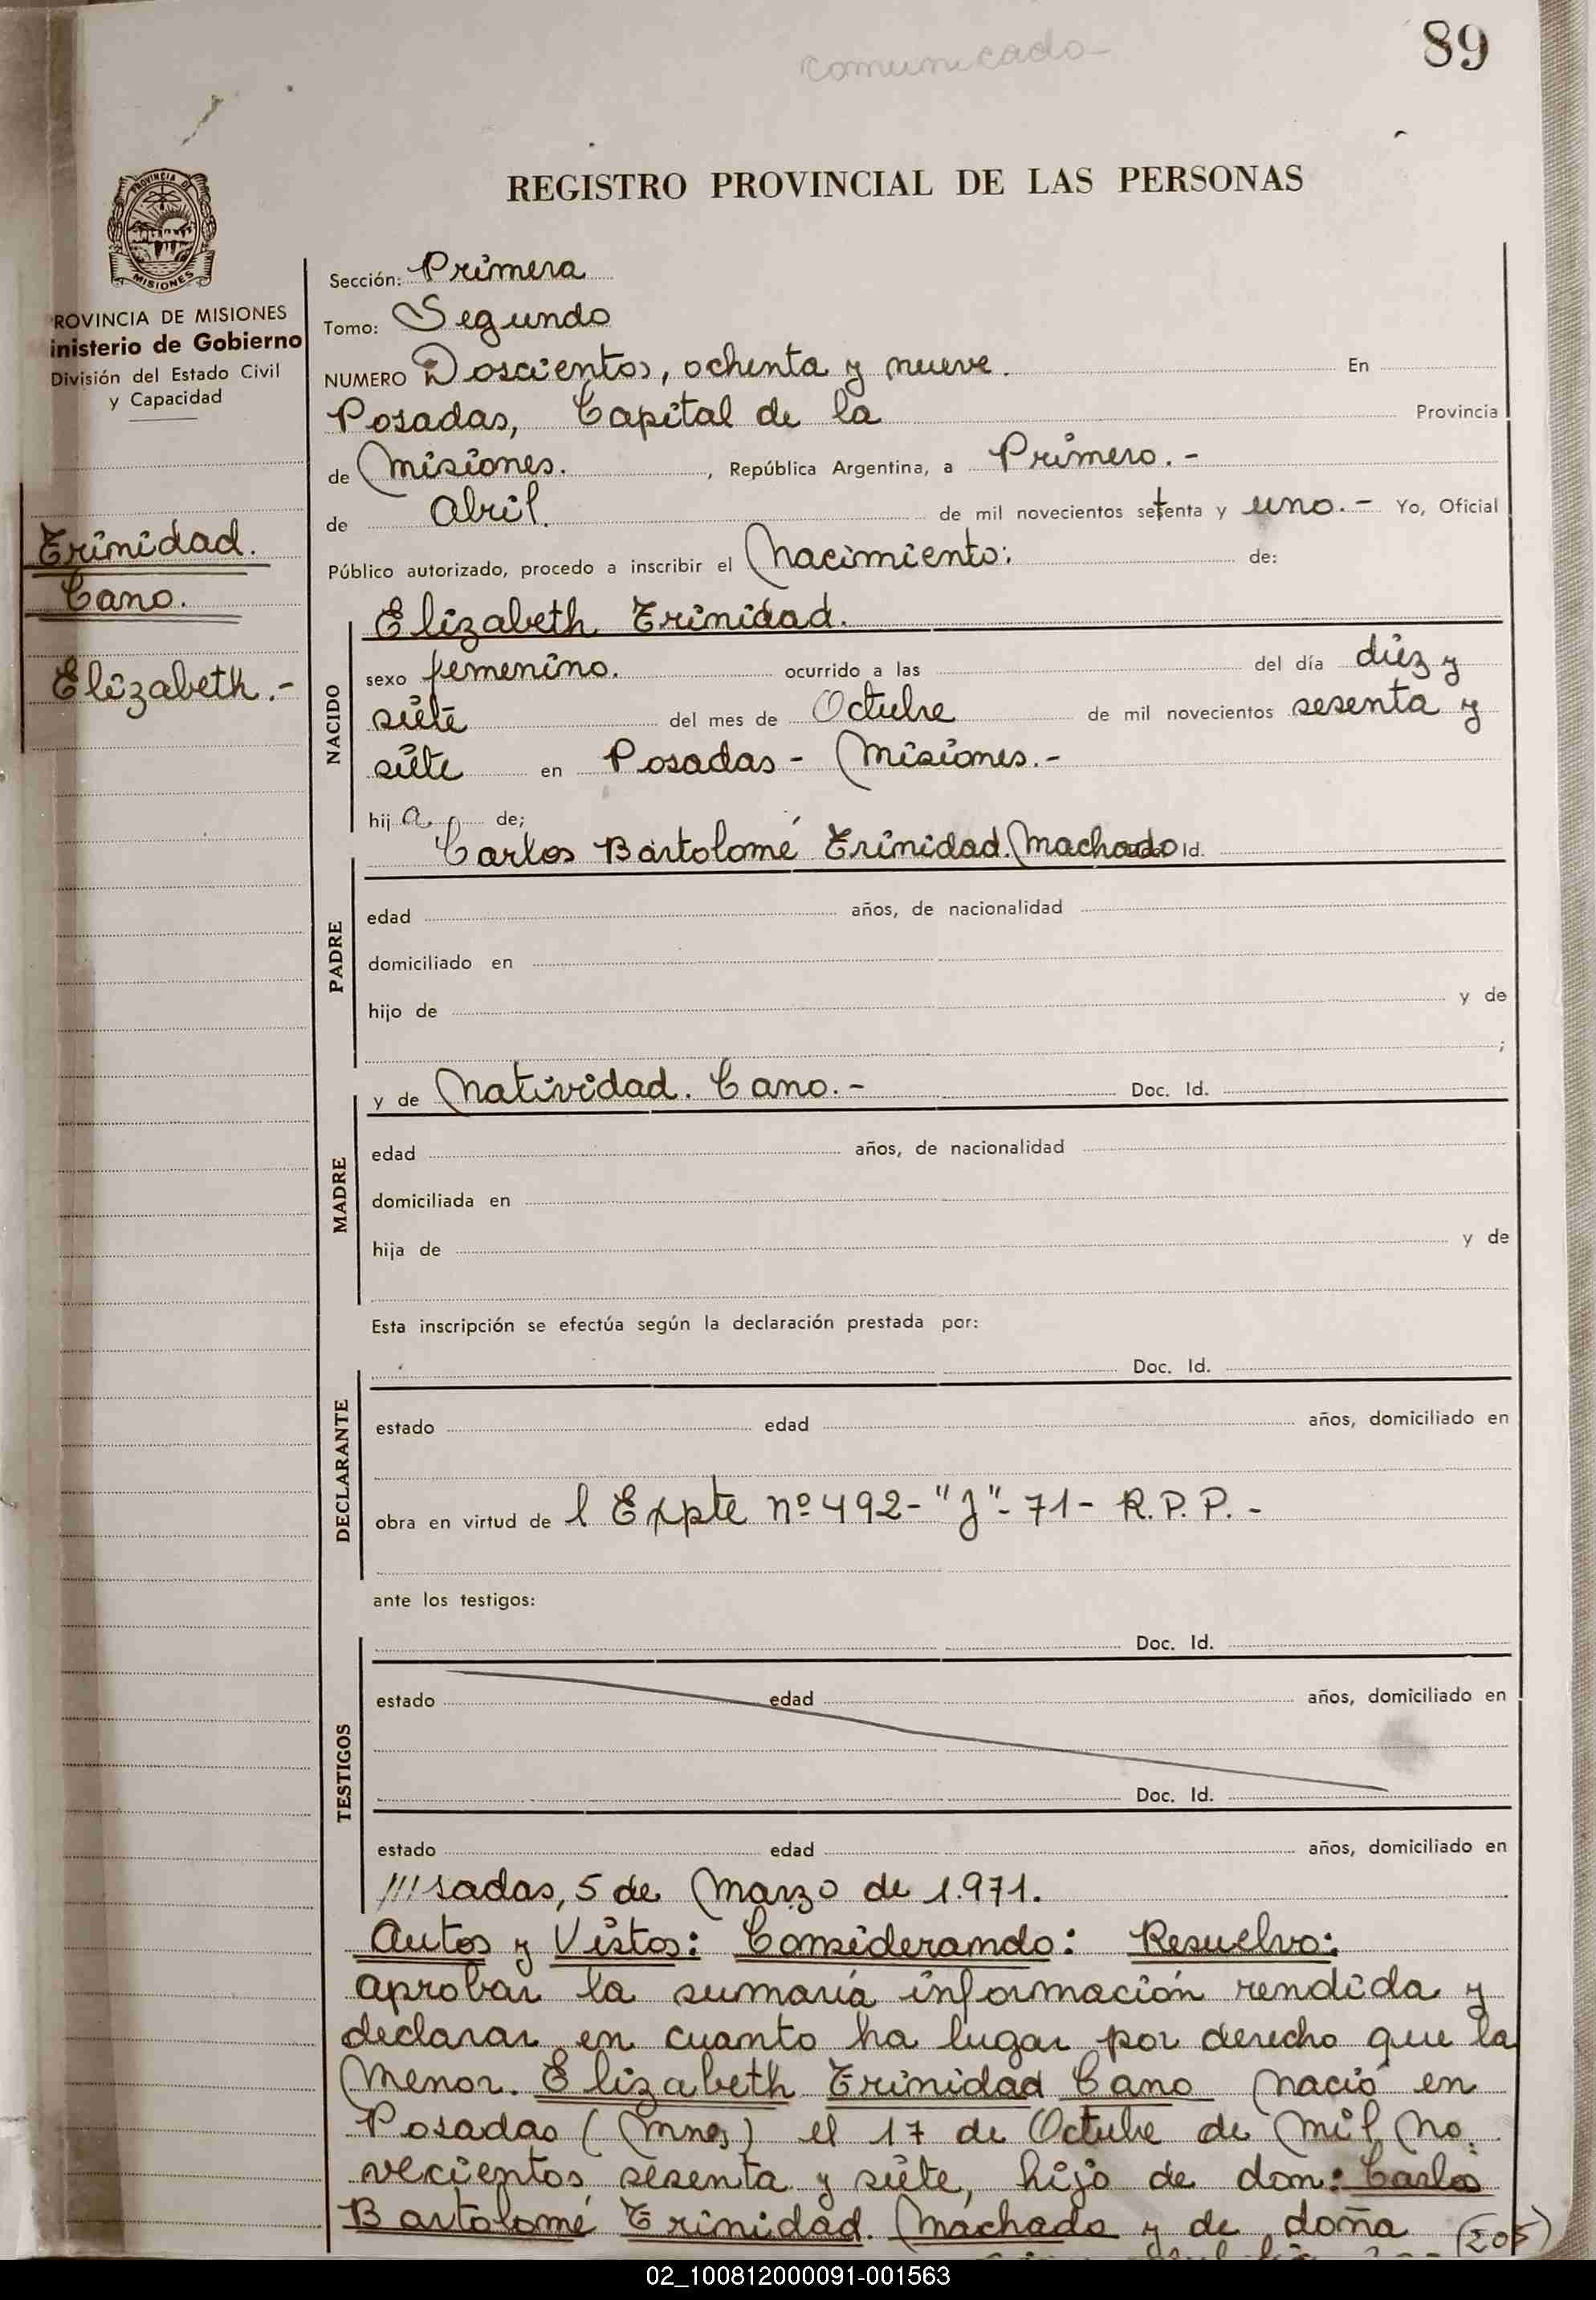 comunicado
89
REGISTRO PROVINCIAL DE LAS PERSONAS
PROVINCIA DE
MISIONES
ROVINCIA DE MISIONES
inisterio de Gobierno
División del Estado Civil
y Capacidad
Trinidad.
Cano.
Elizabeth.-
Sección: Primera
Tomo: Segundo
NUMERO Doscientos, ochenta y nueve. En
Posadas, Capital de la Provincia
de Misiones. , República Argentina, a Primero.-
de Abril. de mil novecientos setenta y uno.- Yo, Oficial
Público autorizado, procedo a inscribir el Nacimiento: de:
NACIDO
Elizabeth Trinidad.
sexo femenino. ocurrido a las del día diez y
siete del mes de Octubre de mil novecientos sesenta y
siete en Posadas - Misiones.-
hij a de;
PADRE
Carlos Bartolomé Trinidad. Machado Id.
edad años, de nacionalidad
domiciliado en
hijo de y de
;
MADRE
y de Natividad. Cano.- Doc. Id.
edad años, de nacionalidad
domiciliada en
hija de y de
Esta inscripción se efectúa según la declaración prestada por:
DECLARANTE
Doc. Id.
estado edad años, domiciliado en
obra en virtud de l Expte nº 492-"J"-71- R.P.P.-
ante los testigos:
TESTIGOS
Doc. Id.
estado edad años, domiciliado en
Doc. Id.
estado edad años, domiciliado en
///sadas, 5 de Marzo de 1.971.
Autos y Vistos: Considerando: Resuelvo:
aprobar la sumaria información rendida y
declarar en cuanto ha lugar por derecho que la
Menor. Elizabeth Trinidad Cano nació en
Posadas (Mnes) el 17 de Octubre de Mil No
vecientos sesenta y siete, hijo de don: Carlos
Bartolomé Trinidad. Machado y de doña
(205)
02_100812000091-001563